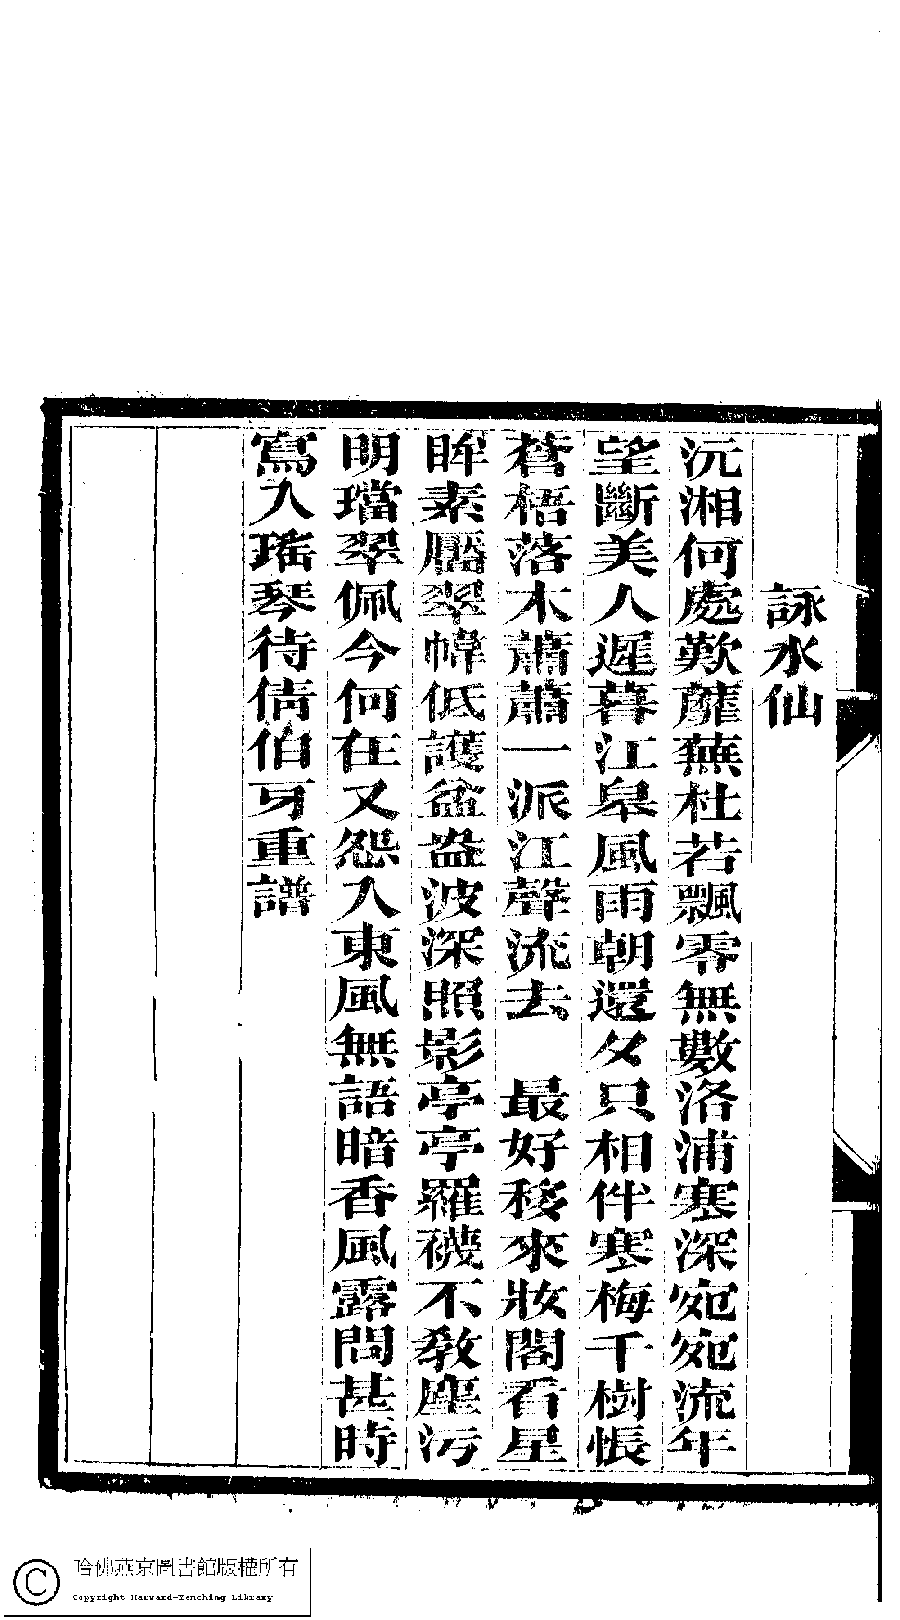 詠水仙
沅湘何處歎蘼蕪杜若飄零無數洛浦寒深宛宛流年
望斷美人遲暮江皐風雨朝還夕只相伴寒梅千樹悵
蒼梧落木蕭蕭一派江聲流去　最好移來妝閣看星
眸素靨翠幃低護盆盎波深照影亭亭羅襪不教塵污
明璫翠佩今何在又怨入東風無語暗香風露問甚時
寫入瑤琴待倩伯牙重譜
哈佛燕京圖書館版權所有
Copyright Harvard-Yenching Library